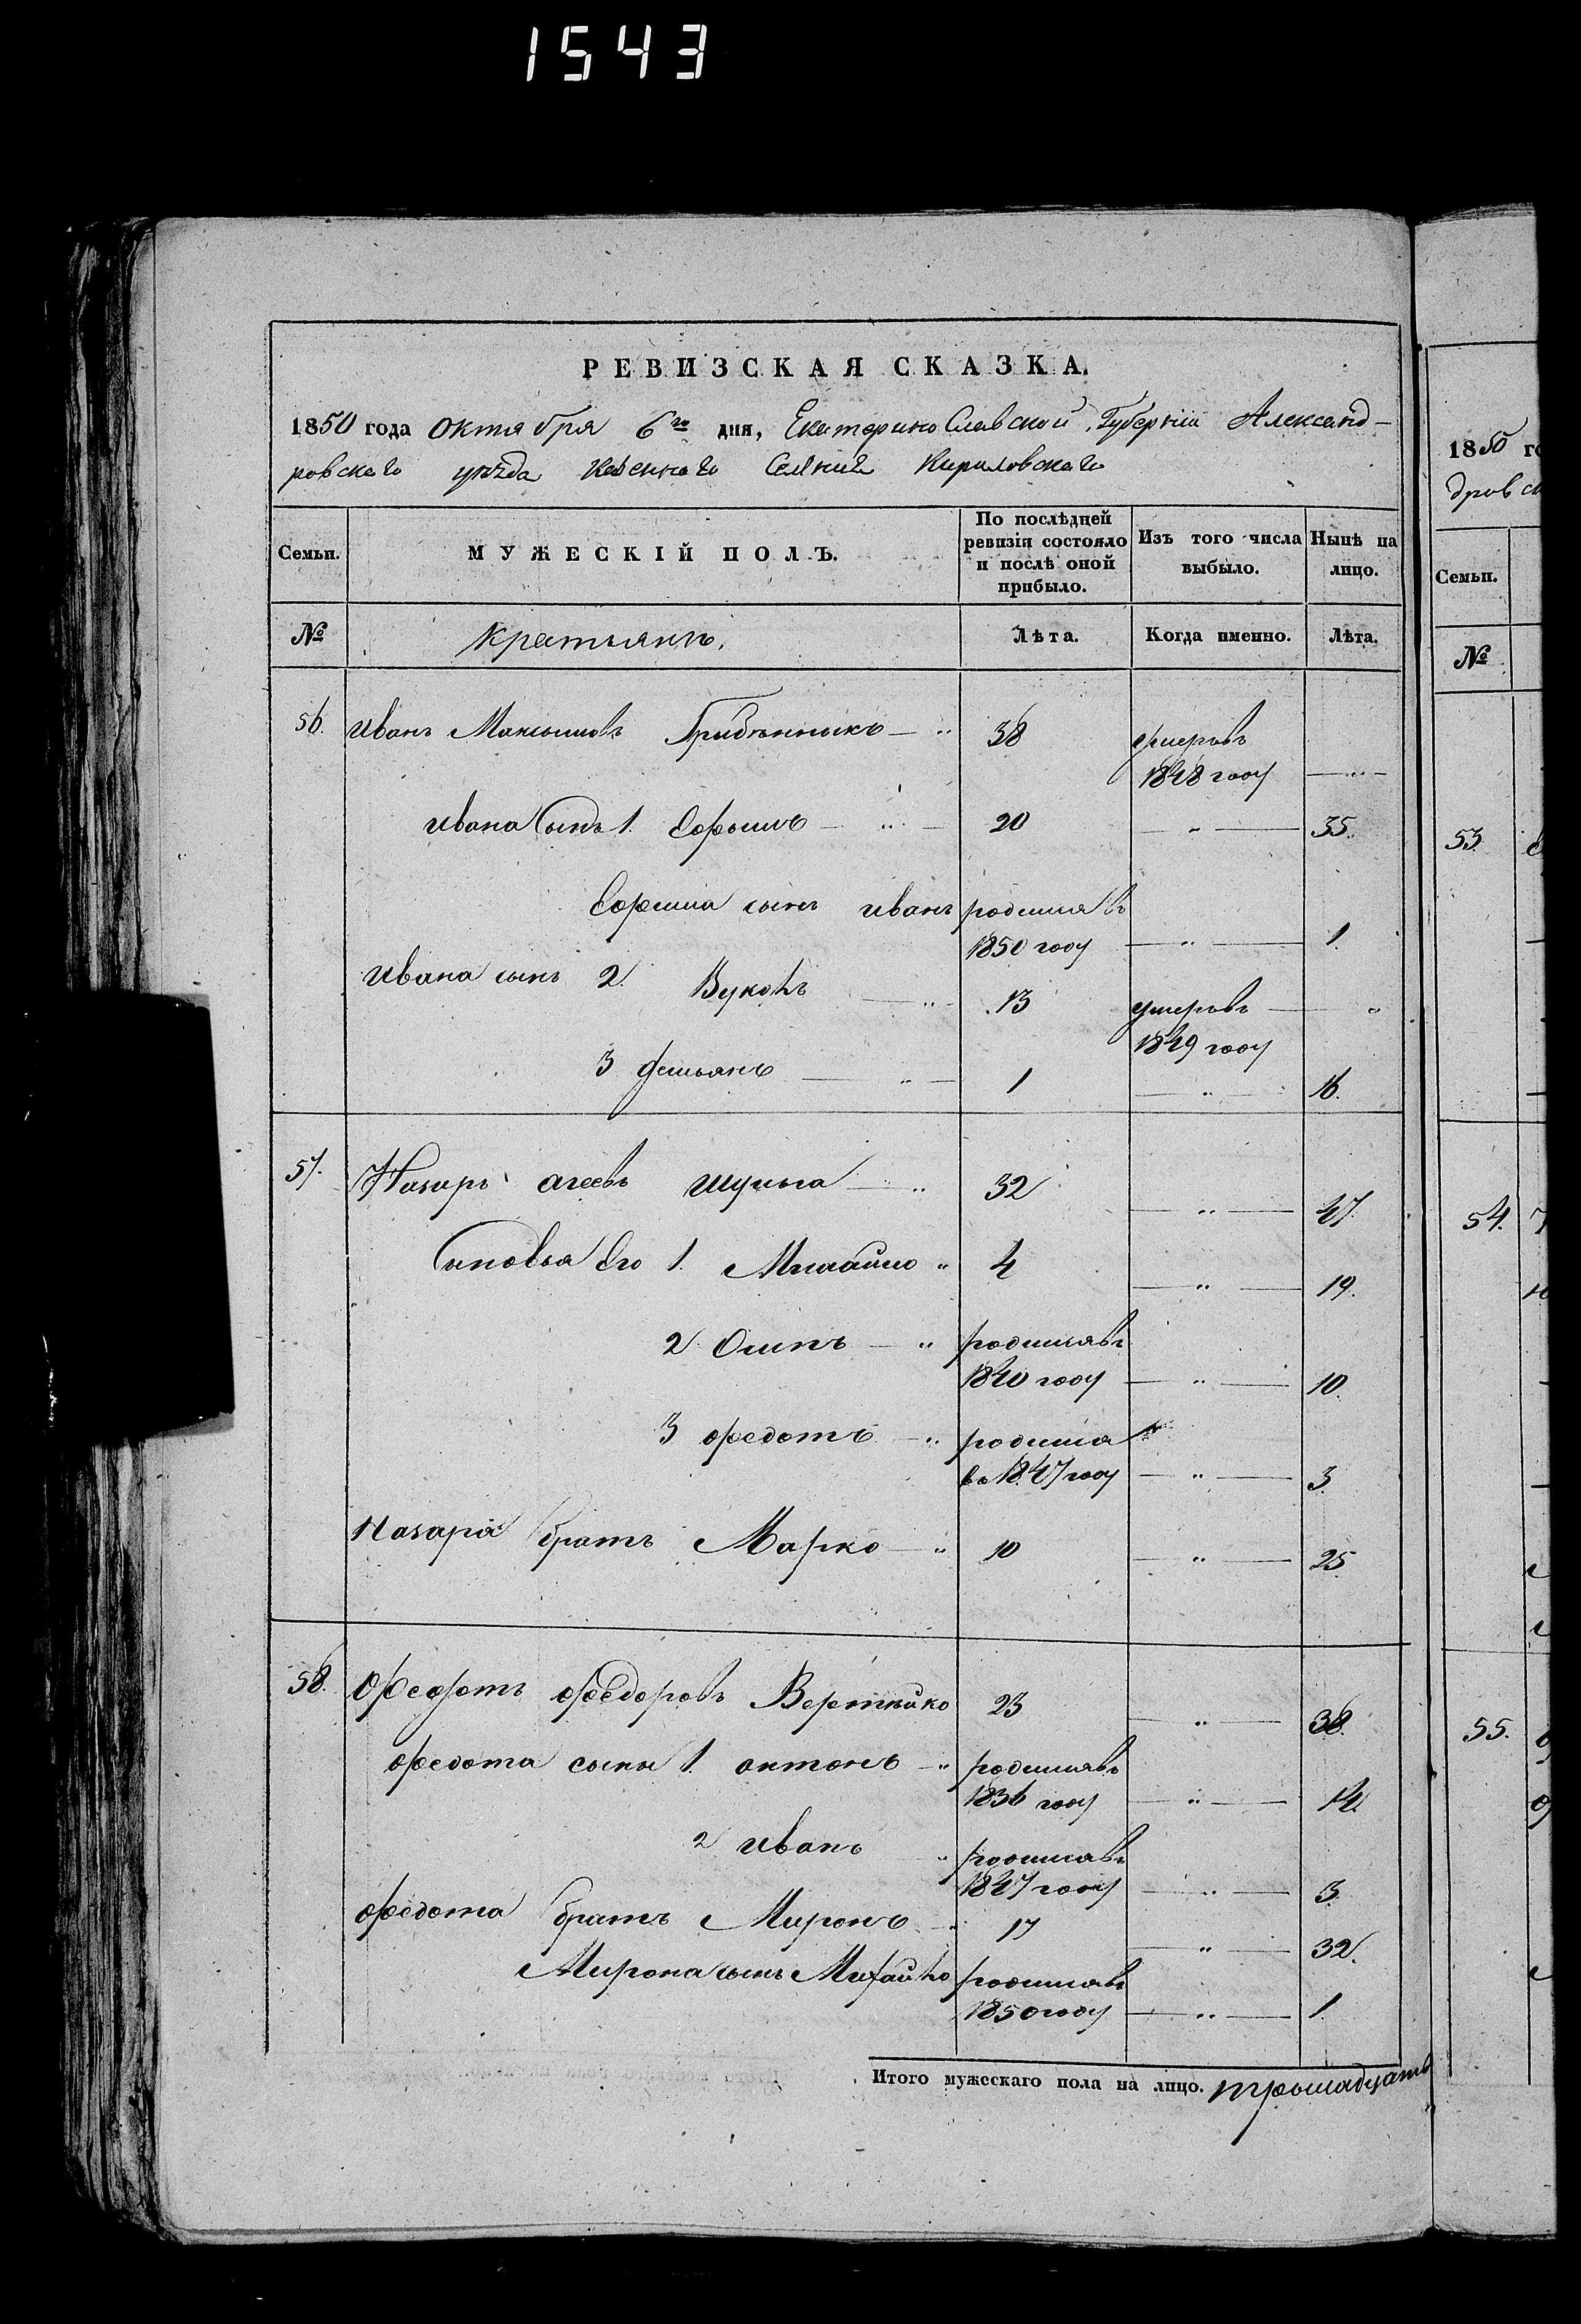 1543
РЕВИЗСКАЯ СКАЗКА.
1850 года октября 6го дня, Екатеринославской Губерніи Александ-
ровскаго уѣзда Казеннаго Селенія Кириловскаго
Семьи. МУЖЕСКІЙ ПОЛЪ. По послѣдней ревизіи состояло и послѣ оной прибыло. Изъ того числа выбыло. Нынѣ на лицо.
№ Крестьянъ. Лѣта. Когда именно. Лѣта.
56. Иванъ Максимовъ 38 умеръ въ
1848 году
Ивана Сынъ 1. Ефримъ 20 35.
Ефрима сынъ Иванъ родился въ
1850 году 1.
Ивана сынъ 2. Вуколъ 13 умеръ въ
1849 году
3 Демьянъ 1 16.
57. Назаръ Агеевъ Шульга 32 47.
Сыновья Его 1. Михайло 4 19.
2 Осипъ родился въ
1840 году 10.
3 Федотъ родился
въ 1847 году 3.
Назара братъ Марко 10 25
58. Федотъ Федоровъ 23 38.
Федота сыны 1. Антонъ родился въ
1836 году 14.
2 Иванъ родился въ
1847 году 3.
Федота братъ Миронъ 17 32.
Мирона сынъ Михайло родился въ
1850 году 1.
Итого мужескаго пола на лицо. тринадцать
1850 го
дров
Семьи.
№
53.
54.
55.